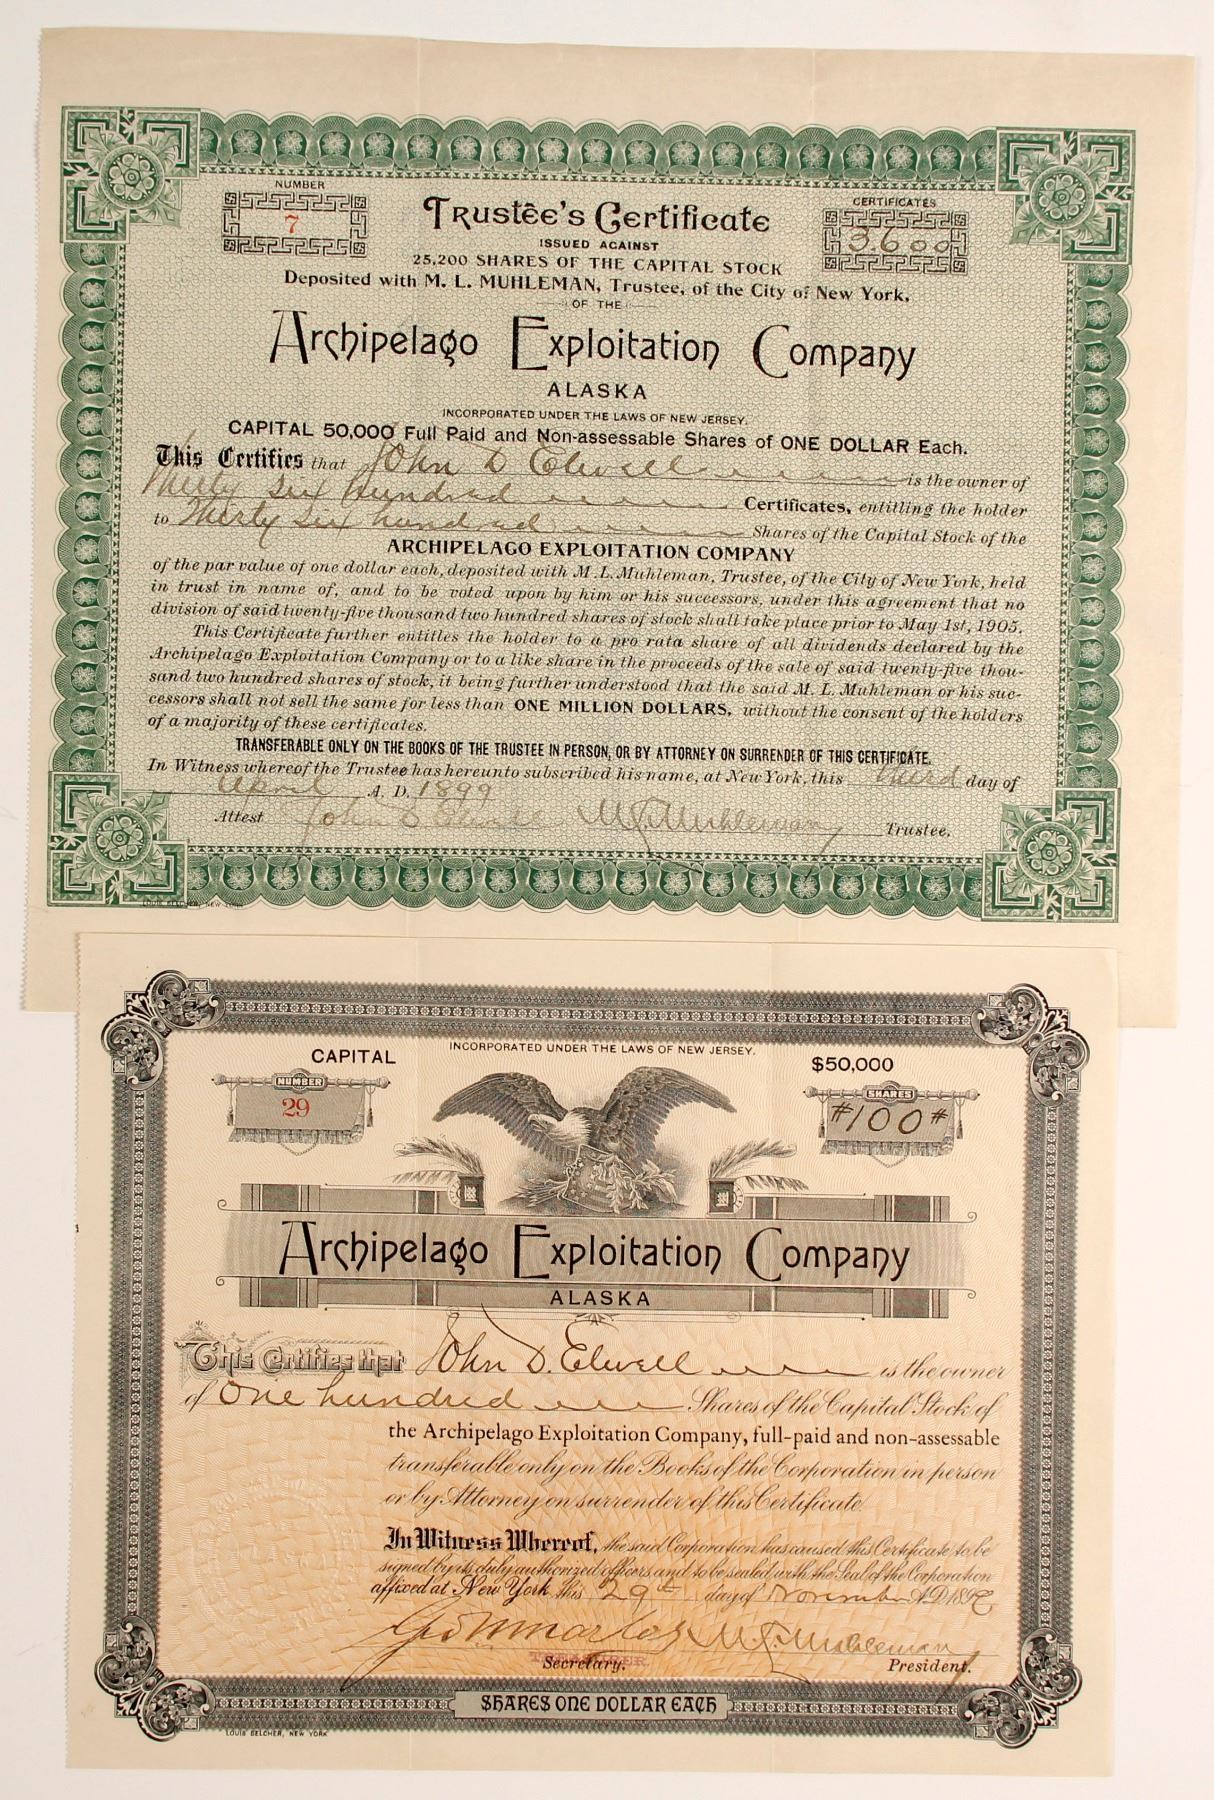 NUMBER
7
Trustêe's Certificate
CERTIFICATES
3600
ISSUED AGAINST
25,200 SHARES OF THE CAPITAL STOCK
Deposited with M. L. MUHLEMAN, Trustee, of the City of New York,
OF THE
Archipelago Exploitation Company
ALASKA
INCORPORATED UNDER THE LAWS OF NEW JERSEY.
CAPITAL 50,000 Full Paid and Non-assessable Shares of ONE DOLLAR Each.
This Certifies that John D Elwell is the owner of
Thirty six hundred Certificates, entitling the holder
to Thirty six hundred Shares of the Capital Stock of the
ARCHIPELAGO EXPLOITATION COMPANY
of the par value of one dollar each, deposited with M. L. Muhleman, Trustee, of the City of New York, held
in trust in name of, and to be voted upon by him or his successors, under this agreement that no
division of said twenty-five thousand two hundred shares of stock shall take place prior to May 1st, 1905.
This Certificate further entitles the holder to a pro rata share of all dividends declared by the
Archipelago Exploitation Company or to a like share in the proceeds of the sale of said twenty-five thou-
sand two hundred shares of stock, it being further understood that the said M. L. Muhleman or his suc-
cessors shall not sell the same for less than ONE MILLION DOLLARS, without the consent of the holders
of a majority of these certificates.
TRANSFERABLE ONLY ON THE BOOKS OF THE TRUSTEE IN PERSON, OR BY ATTORNEY ON SURRENDER OF THIS CERTIFICATE.
In Witness whereof the Trustee has hereunto subscribed his name, at New York, this third day of
April A. D. 1899
Attest John D Elwell M. L. Muhleman Trustee.
LOUIS BELCHER, NEW YORK
CAPITAL
INCORPORATED UNDER THE LAWS OF NEW JERSEY.
$50,000
NUMBER
29
SHARES
#100#
Archipelago Exploitation Company
ALASKA
This Certifies that John D. Elwell is the owner
of One hundred Shares of the Capital Stock of
the Archipelago Exploitation Company, full-paid and non-assessable
transferable only on the Books of the Corporation in person
or by Attorney on surrender of this Certificate.
In Witness Whereof, the said Corporation has caused this Certificate to be
signed by its duly authorized officers and to be sealed with the Seal of the Corporation
affixed at New York this 29th day of November A.D. 189
M. L. Muhleman
TREASURER.
Secretary. President.
SHARES ONE DOLLAR EACH
LOUIS BELCHER, NEW YORK